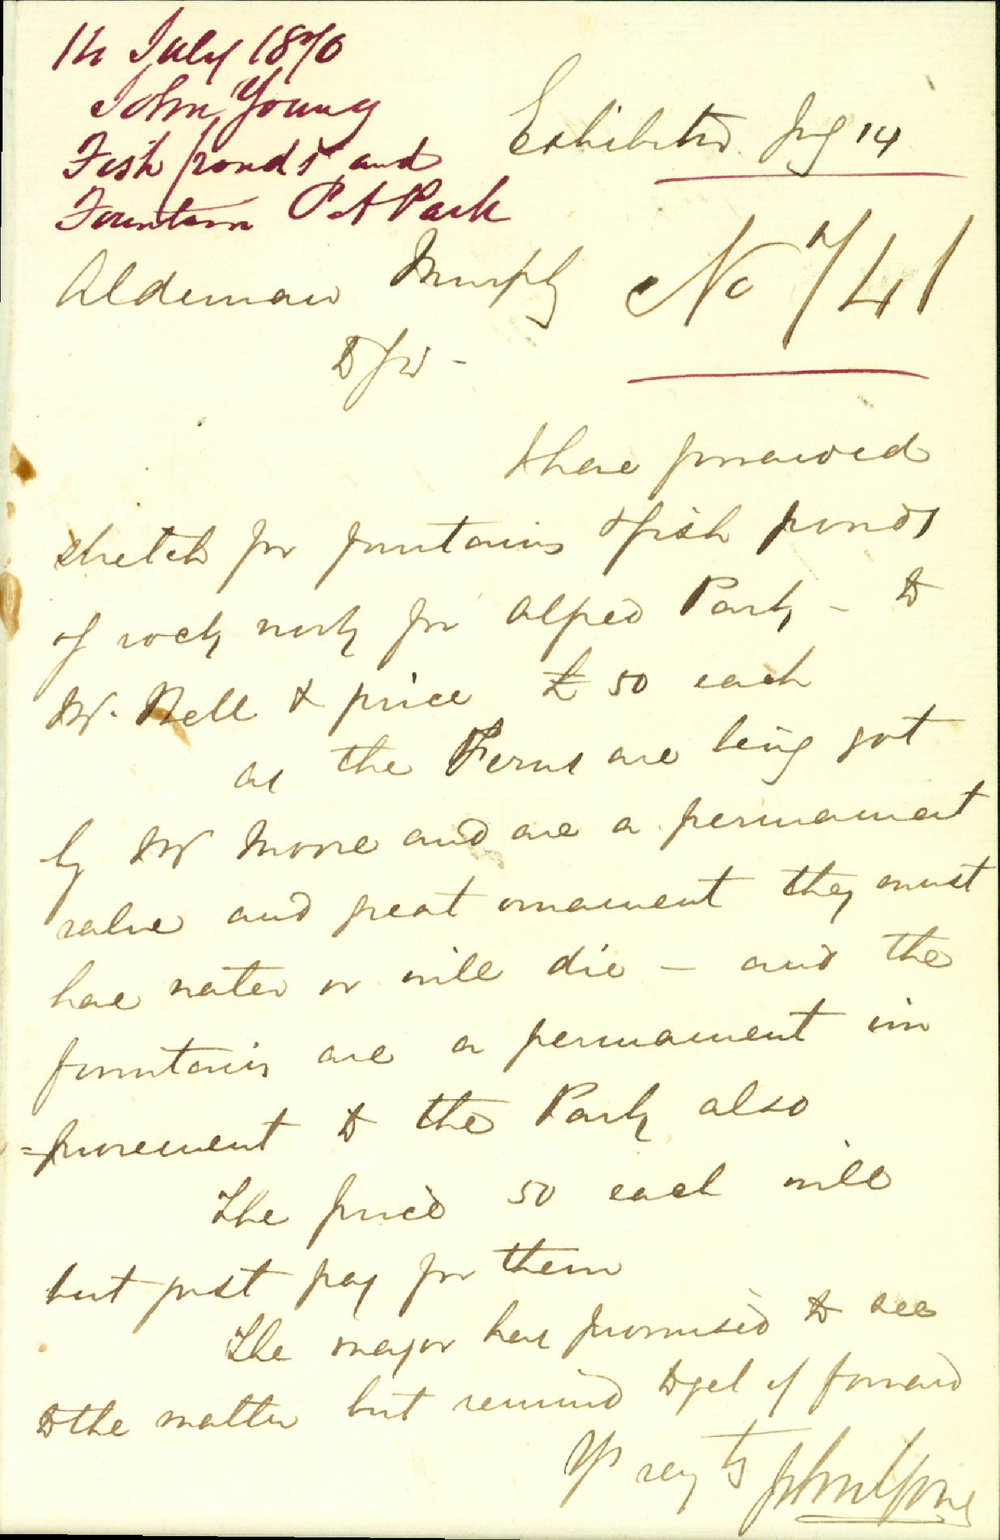 14 July 1870
John Young
Fish ponds and
Fountain P A Park
Exhibited July 14
No 741
Alderman Murphy
Dr Sir -
I have forwarded
sketch for fountains & fish ponds
of rock work for Alfred Park - to
Mr. Bell & price £ 50 each
as the Ferns are being got
by Mr Moore and are a permanent
value and great ornament they must
have water or will die - and the
fountains are a permanent im
=provement to the Park also
The price 50 each will
but just pay for them
The mayor has promised to see
to the matter but remind & get it forward
Yrs very ty John Young